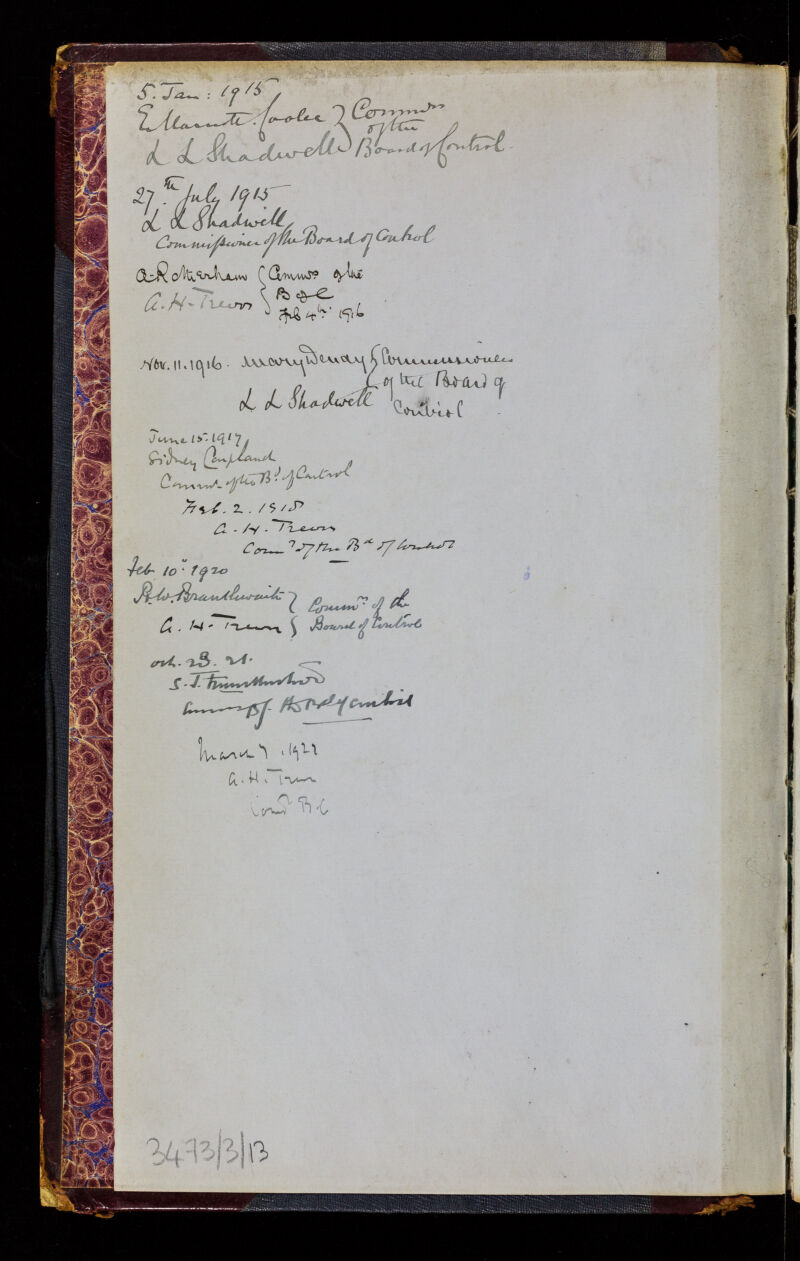 5. Jan: 1915
E. Marriott Cooke } Commrs
of the
L L Shadwell } Board of Control.
27th July 1915
L L Shadwell
Commissioner of the Board of Control
A. Rotherham { Commrs of the
A. H. Trevor { B of C
Feb 4th 1916
Nov. 11. 1916. Mary Dendy { Commissioners
of the Board of
L L Shadwell Control
June 15. 1917
Sidney Coupland
Commr of the Bd. of Control
Feb. 2. 1918
A. H. Trevor
Comr of the Bd of Control
Feb 10th 1920
R. W. Branthwaite } Commrs of the
A. H. Trevor } Board of Control
Oct. 28. 21.
S. J.
of Control
March 7. 1922
A. H. Trevor
Comr B. C
3473/3/13